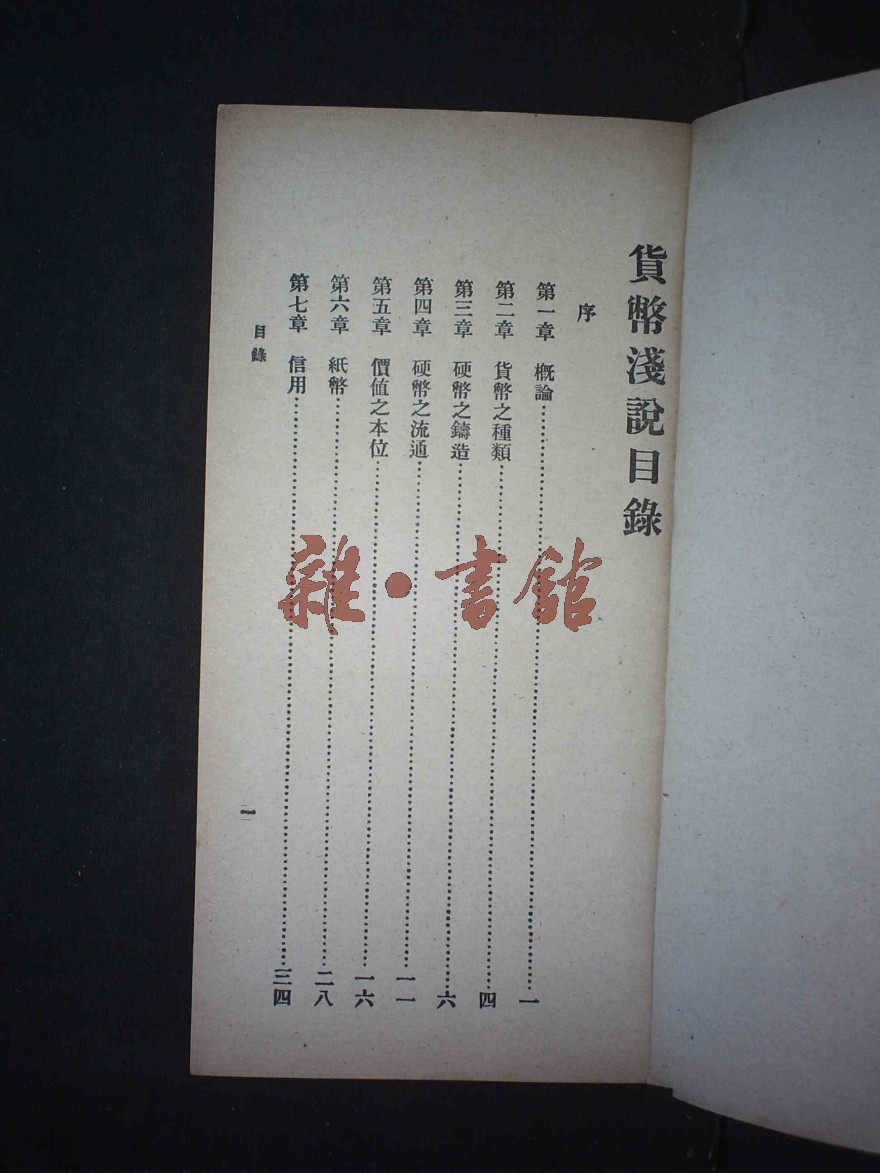 貨幣淺說目錄
序
第一章　概論……一
第二章　貨幣之種類……四
第三章　硬幣之鑄造……六
第四章　硬幣之流通……一一
第五章　價值之本位……一六
第六章　紙幣……二八
第七章　信用……三四
目錄
一
雜·書館